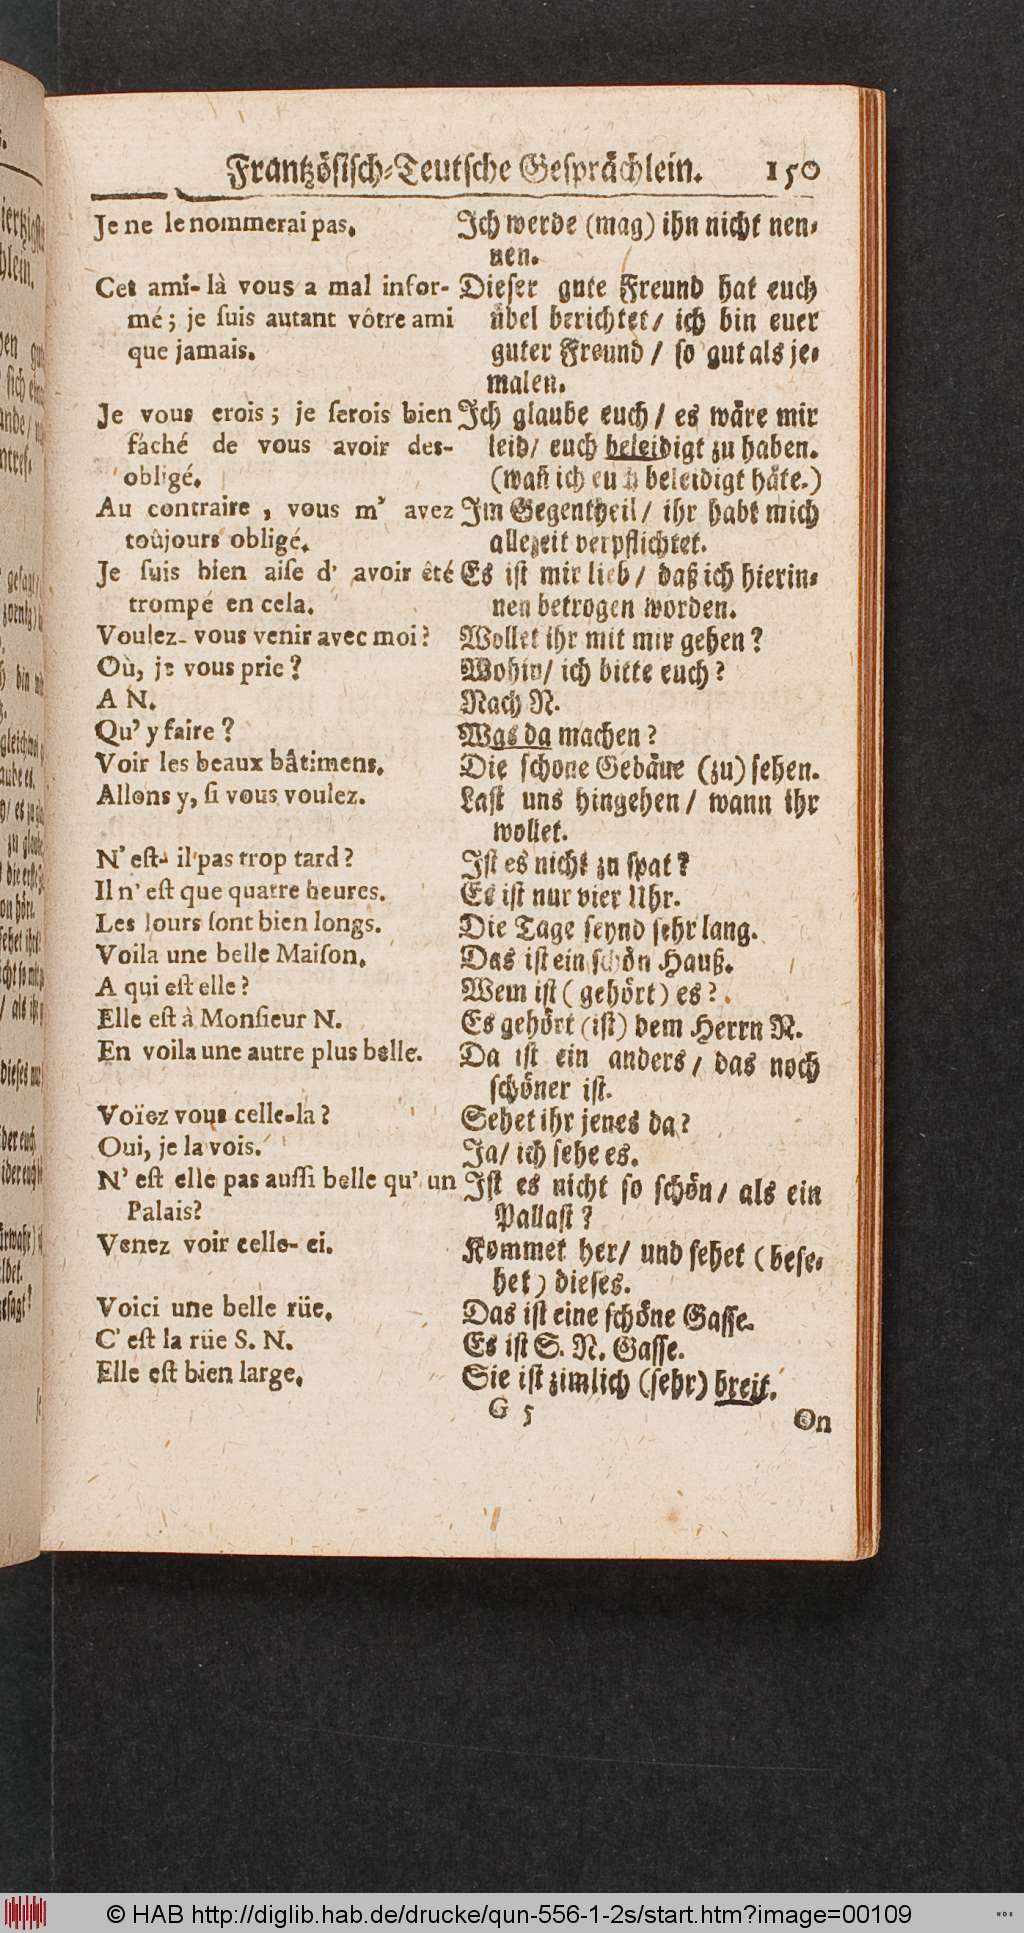 Frantzösisch-Teutsche Gesprächlein. 150
Je ne le nommerai pas.
Cet ami-là vous a mal infor-
mé; je ſuis autant vôtre ami
que jamais.
Je vous crois; je ſerois bien
fâché de vous avoir des-
obligé.
Au contraire, vous m' avez
toûjours obligé.
Je ſuis bien aiſe d' avoir êté
trompé en cela.
Voulez-vous venir avec moi?
Où, je vous prie?
A N.
Qu' y faire?
Voir les beaux bâtimens.
Allons y, ſi vous voulez.
N' eſt-il pas trop tard?
Il n' eſt que quatre heures.
Les jours ſont bien longs.
Voila une belle Maiſon.
A qui eſt elle?
Elle eſt à Monſieur N.
En voila une autre plus belle.
Voïez vous celle-la?
Oui, je la vois.
N' eſt elle pas auſſi belle qu' un
Palais?
Venez voir celle-ci.
Voici une belle rüe.
C' eſt la rüe S. N.
Elle eſt bien large.
Ich werde (mag) ihn nicht nen-
nen.
Dieſer gute Freund hat euch
übel berichtet/ ich bin euer
guter Freund/ ſo gut als je-
malen.
Ich glaube euch/ es wäre mir
leid/ euch beleidigt zu haben.
(wañ ich euch beleidigt häte.)
Im Gegentheil/ ihr habt mich
allezeit verpflichtet.
Es iſt mir lieb/ daß ich hierin-
nen betrogen worden.
Wollet ihr mit mir gehen?
Wohin/ ich bitte euch?
Nach N.
Was da machen?
Die ſchone Gebäue (zu) ſehen.
Laſt uns hingehen/ wann ihr
wollet.
Iſt es nicht zu ſpat?
Es iſt nur vier Uhr.
Die Tage ſeynd ſehr lang.
Das iſt ein ſchön Hauß.
Wem iſt (gehört) es?
Es gehört (iſt) dem Herrn N.
Da iſt ein anders/ das noch
ſchöner iſt.
Sehet ihr jenes da?
Ja/ ich ſehe es.
Iſt es nicht ſo ſchön/ als ein
Pallaſt?
Kommet her/ und ſehet (beſe-
het) dieſes.
Das iſt eine ſchöne Gaſſe.
Es iſt S. N. Gaſſe.
Sie iſt zimlich (ſehr) breit.
G 5
On
© HAB http://diglib.hab.de/drucke/qun-556-1-2s/start.htm?image=00109